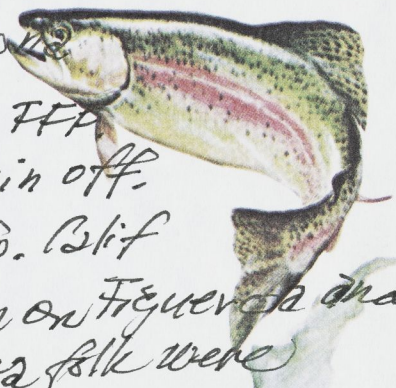 FFP
in off.
o. Calif
n on Figueroa and
a folk were